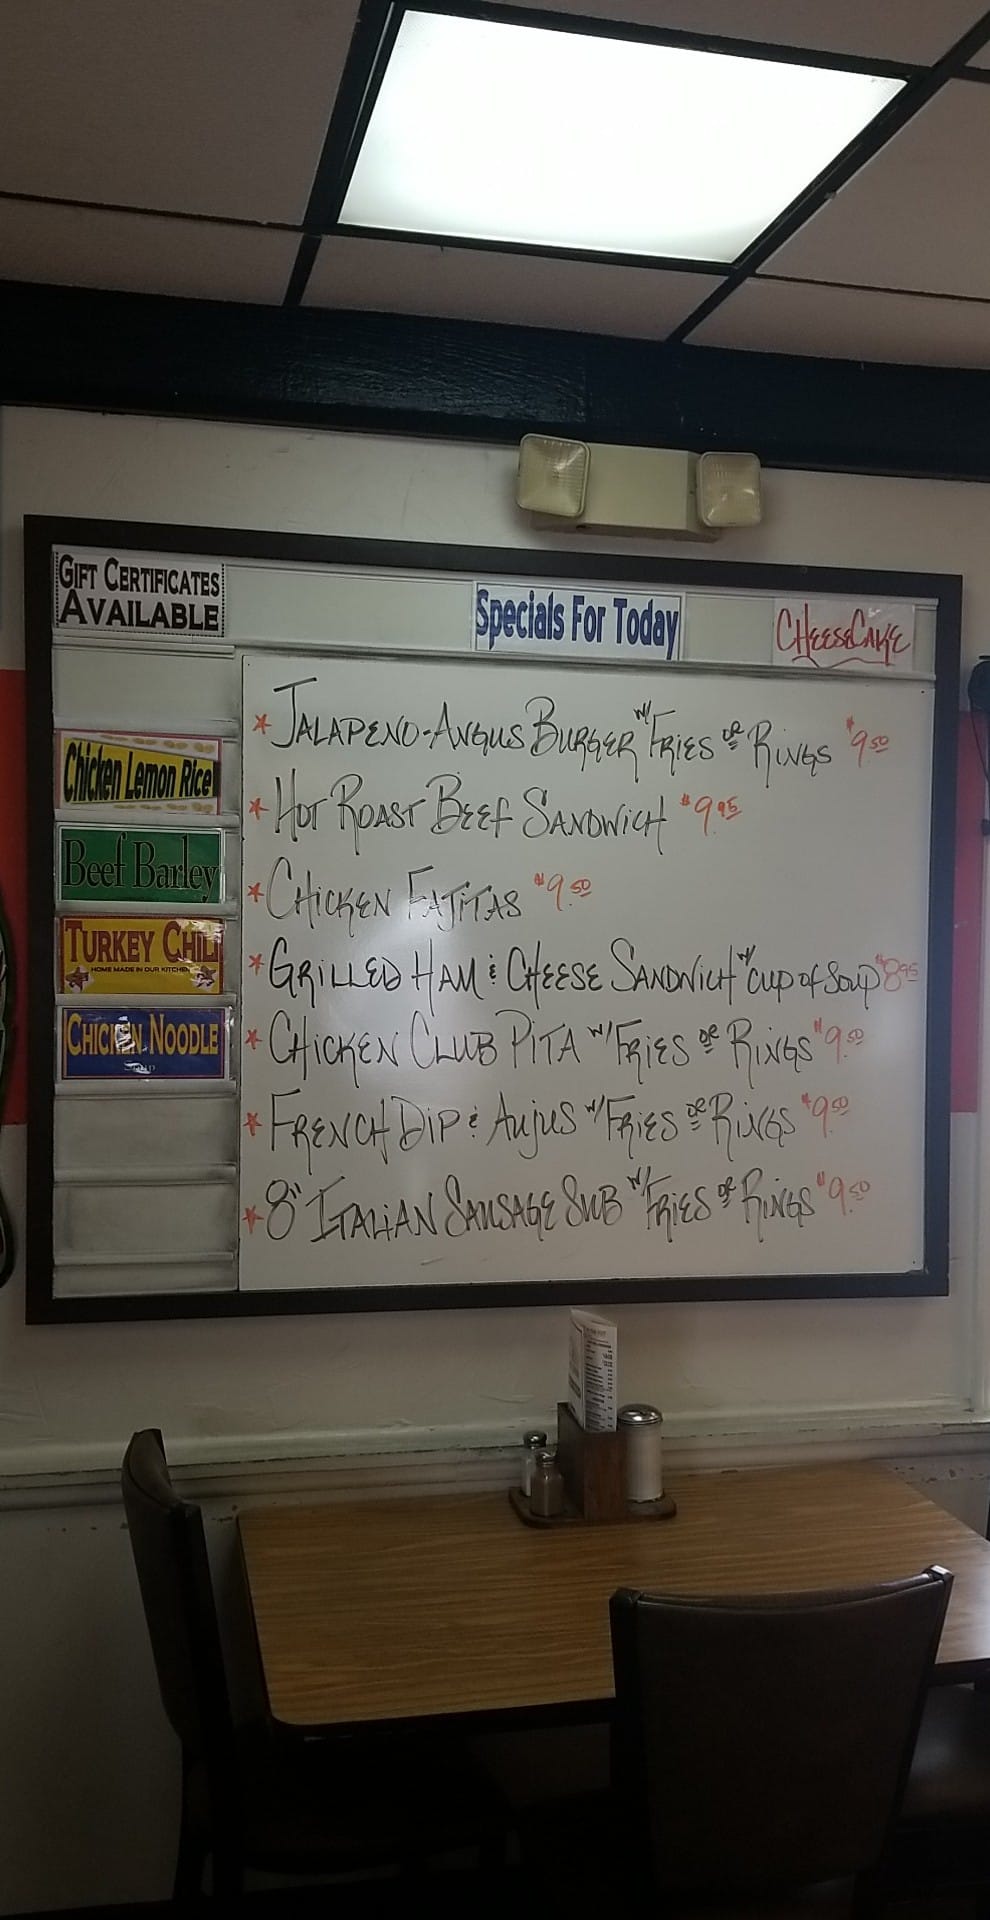 GIFT CERTIFICATES
AVAILABLE
Specials For Today
CHEESECAKE
Chicken Lemon Rice
Beef Barley
TURKEY CHILI
HOME MADE IN OUR KITCHEN
CHICKEN NOODLE
Soup
* JALAPENO-ANGUS BURGER w/ FRIES OR RINGS $9.50
* HOT ROAST BEEF SANDWICH $9.95
* CHICKEN FAJITAS $9.50
* GRILLED HAM & CHEESE SANDWICH w/ cup of soup $8.95
* CHICKEN CLUB PITA w/ FRIES OR RINGS $9.50
* FRENCH DIP & AUJUS w/ FRIES OR RINGS $9.50
* 8" ITALIAN SAUSAGE SUB w/ FRIES OR RINGS $9.50